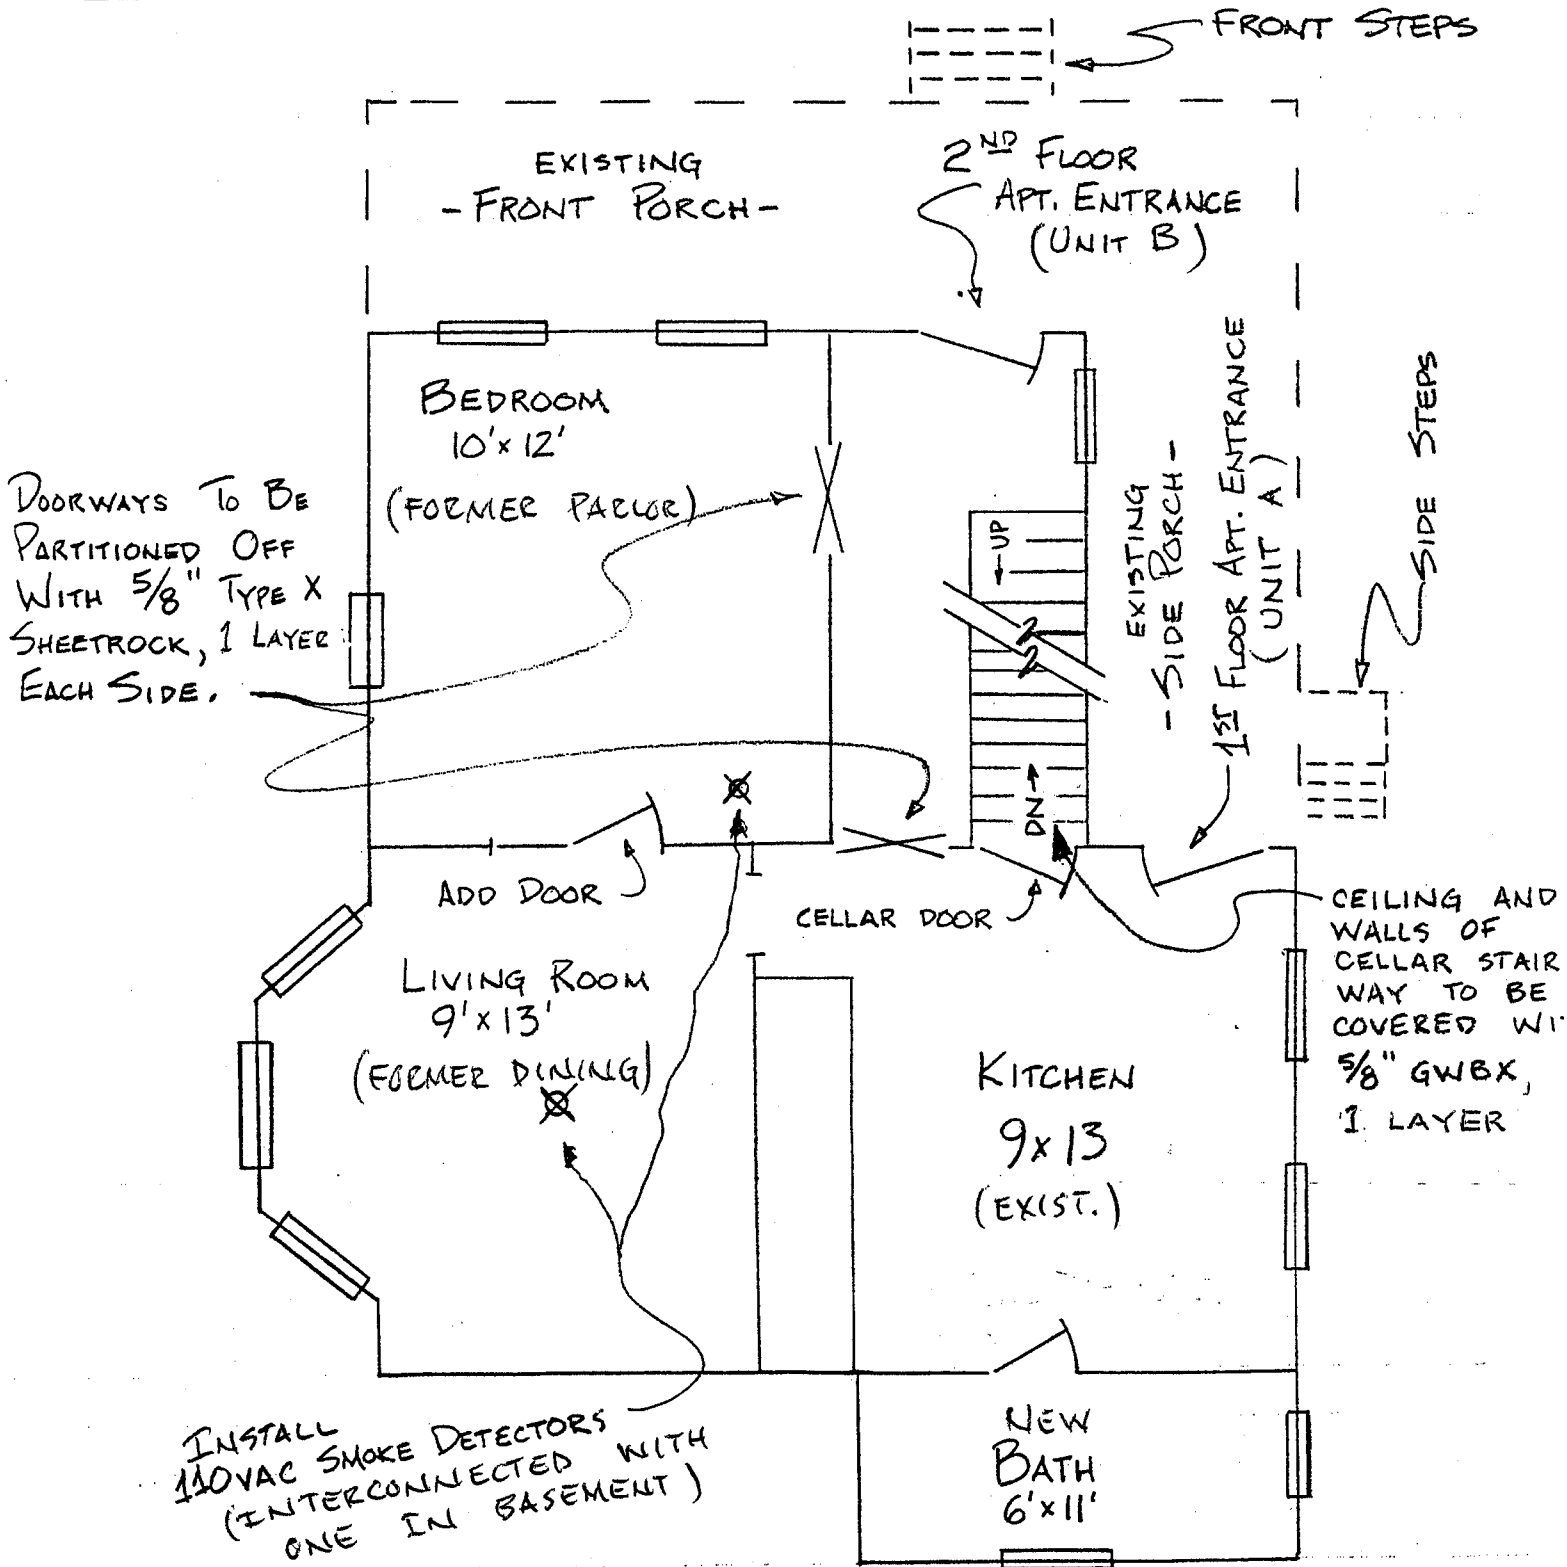 FRONT STEPS
EXISTING
- FRONT PORCH -
2ND FLOOR
APT. ENTRANCE
(UNIT B)
BEDROOM
10' x 12'
(FORMER PARLOR)
DOORWAYS TO BE
PARTITIONED OFF
WITH 5/8" TYPE X
SHEETROCK, 1 LAYER
EACH SIDE.
UP
DN
EXISTING
- SIDE PORCH -
1ST FLOOR APT. ENTRANCE
(UNIT A)
SIDE STEPS
ADD DOOR
CELLAR DOOR
CEILING AND
WALLS OF
CELLAR STAIR
WAY TO BE
COVERED WI
5/8" GWBX,
1 LAYER
LIVING ROOM
9' x 13'
(FORMER DINING)
KITCHEN
9 x 13
(EXIST.)
INSTALL
110VAC SMOKE DETECTORS
(INTERCONNECTED WITH
ONE IN BASEMENT)
NEW
BATH
6' x 11'